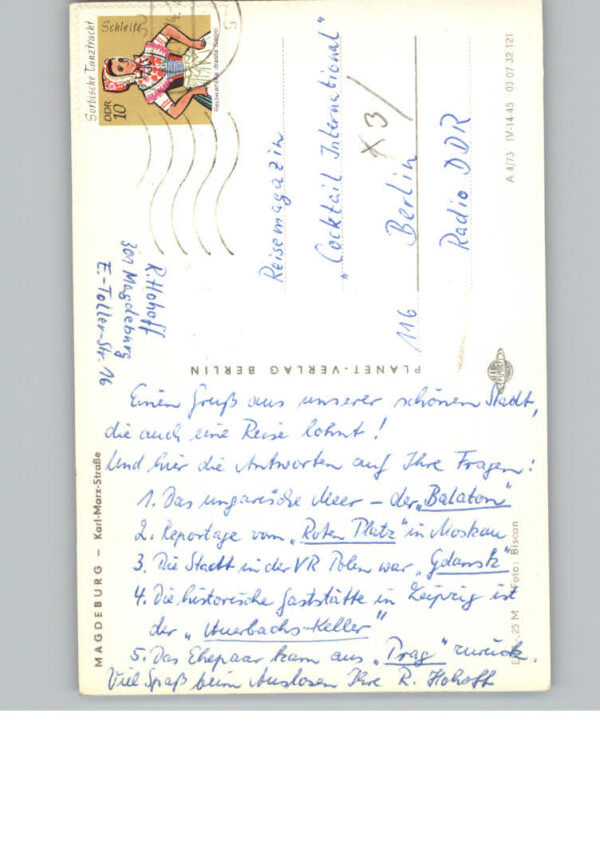 Sorbische Tanztracht
Schleife
DDR
10
Rejowanska drasta Slepo
R. Hohoff
301 Magdeburg
E.-Toller-Str. 16
Reisemagazin
„Cocktail International"
x3/
116 Berlin
Radio DDR
A 4/73 IV-14-45 03 07 32 121
PLANET-VERLAG BERLIN
MAGDEBURG – Karl-Marx-Straße
Einen Gruß aus unserer schönen Stadt,
die auch eine Reise lohnt!
Und hier die Antworten auf Ihre Fragen:
1. Das ungarische Meer – der „Balaton"
2. Reportage vom „Roten Platz" in Moskau
3. Die Stadt in der VR Polen war „Gdansk"
4. Die historische Gaststätte in Leipzig ist
der „Auerbachs-Keller"
5. Das Ehepaar kam aus „Prag" zurück.
Viel Spaß beim Auslosen Ihre R. Hohoff
25 M Foto: Biscan